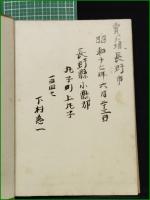 賣場 長野市
昭和十七年六月十三日
長野縣小縣郡
丸子町上丸子
一四四七
下村恵一